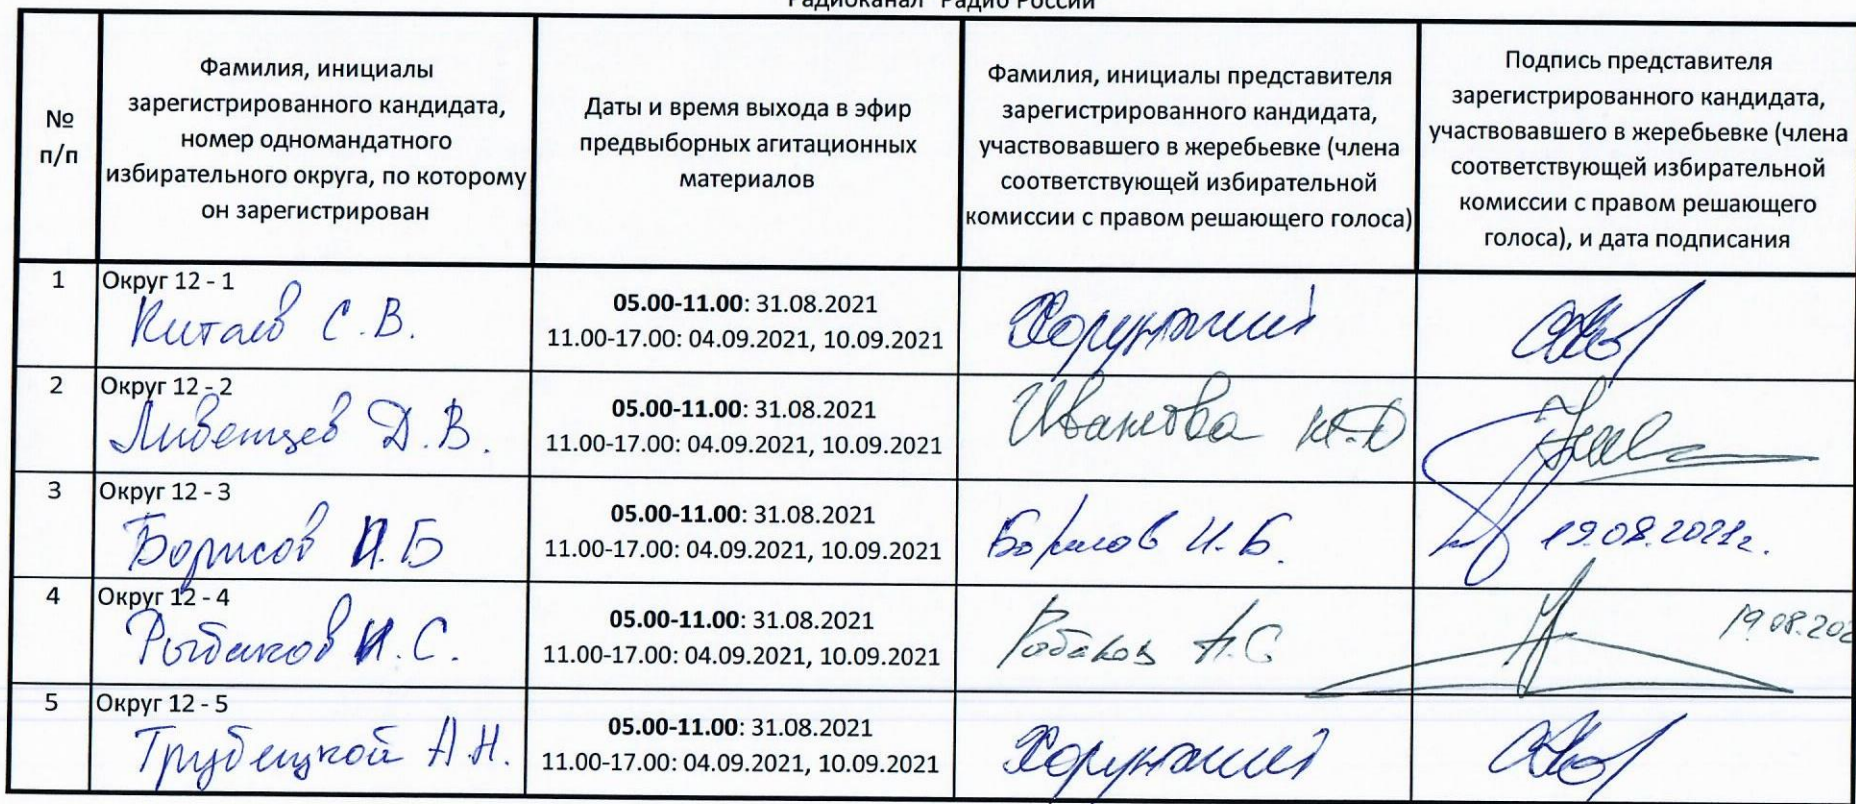 Радиоканал "Радио России"
№
п/п
Фамилия, инициалы
зарегистрированного кандидата,
номер одномандатного
избирательного округа, по которому
он зарегистрирован
Даты и время выхода в эфир
предвыборных агитационных
материалов
Фамилия, инициалы представителя
зарегистрированного кандидата,
участвовавшего в жеребьевке (члена
соответствующей избирательной
комиссии с правом решающего голоса)
Подпись представителя
зарегистрированного кандидата,
участвовавшего в жеребьевке (члена
соответствующей избирательной
комиссии с правом решающего
голоса), и дата подписания
1
Округ 12 - 1
Китаев С.В.
05.00-11.00: 31.08.2021
11.00-17.00: 04.09.2021, 10.09.2021
Хорунжий
2
Округ 12 - 2
Ливенцев Д.В.
05.00-11.00: 31.08.2021
11.00-17.00: 04.09.2021, 10.09.2021
Иванова
3
Округ 12 - 3
Борисов И.Б
05.00-11.00: 31.08.2021
11.00-17.00: 04.09.2021, 10.09.2021
Борисов И.Б.
19.08.2021г.
4
Округ 12 - 4
Рыбаков И.С.
05.00-11.00: 31.08.2021
11.00-17.00: 04.09.2021, 10.09.2021
19.08.202
5
Округ 12 - 5
Трубецкой А.Н.
05.00-11.00: 31.08.2021
11.00-17.00: 04.09.2021, 10.09.2021
Хорунжий